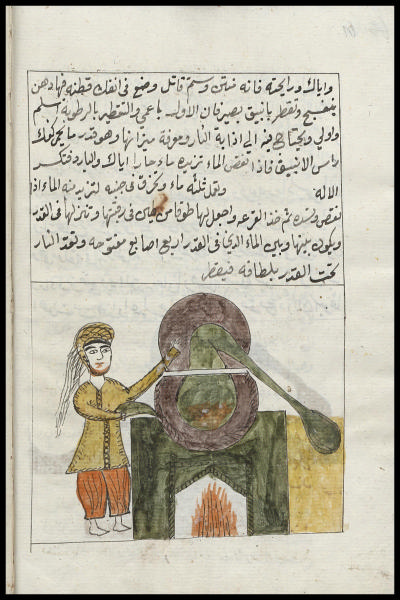 واياك ورايحته فانه منتن وسم قاتل وضع في انفك قطنه فيها دهن
بنفسج وتقطر بانبيق بصير فان الاول باعمى والتقطير بالرطوبة اسلم
واولى ويحتاج فيه الى اذاية النار ومعرفة ميزانها وهو قدر ما يحمى
راس الانبيق فاذا نقص الماء تزيده ماء حارا واياك والبارد فتكسر
الاله ولقد قلته ماء وكررت في جنبه لتزيد منه الماء اذا
نقص وشده ثم خذ القرعه واجعل لها طوقا من في رقبتها وتنزلها في القدر
ويكون بينها وبين الماء الذي في القدر اربع اصابع مفتوحه وتقد النار
تحت القدر بلطافه فيقطر